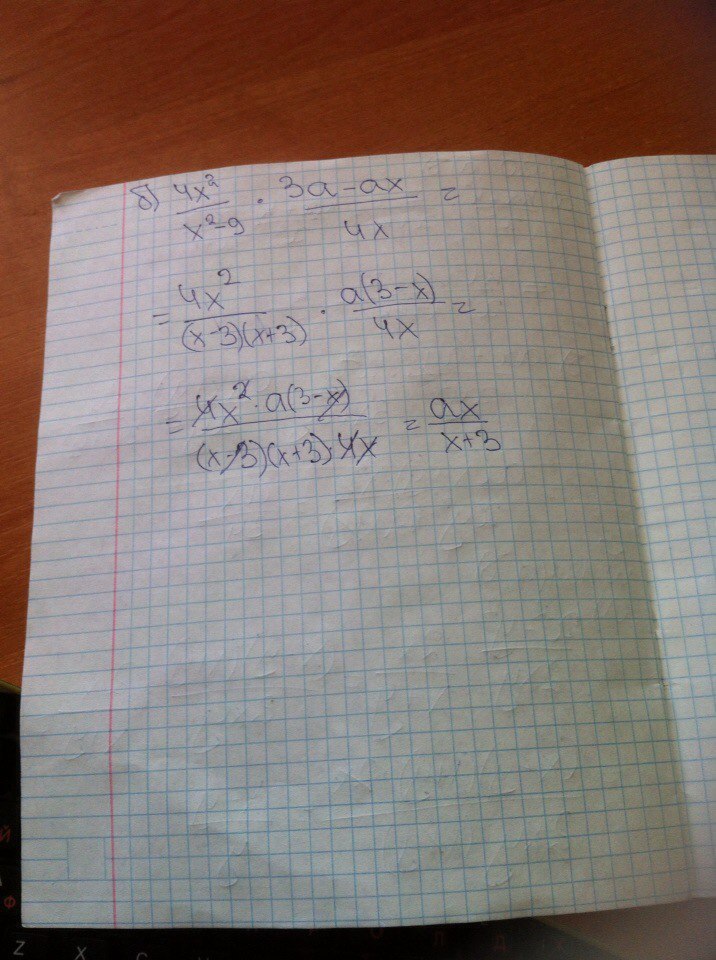 б) 4x²/(x²-9) · (3a-ax)/(4x) =
= 4x²/((x-3)(x+3)) · a(3-x)/(4x) =
= (4x²·a(3-x))/((x-3)(x+3)·4x) = ax/(x+3)
Й
Ф
Z X C